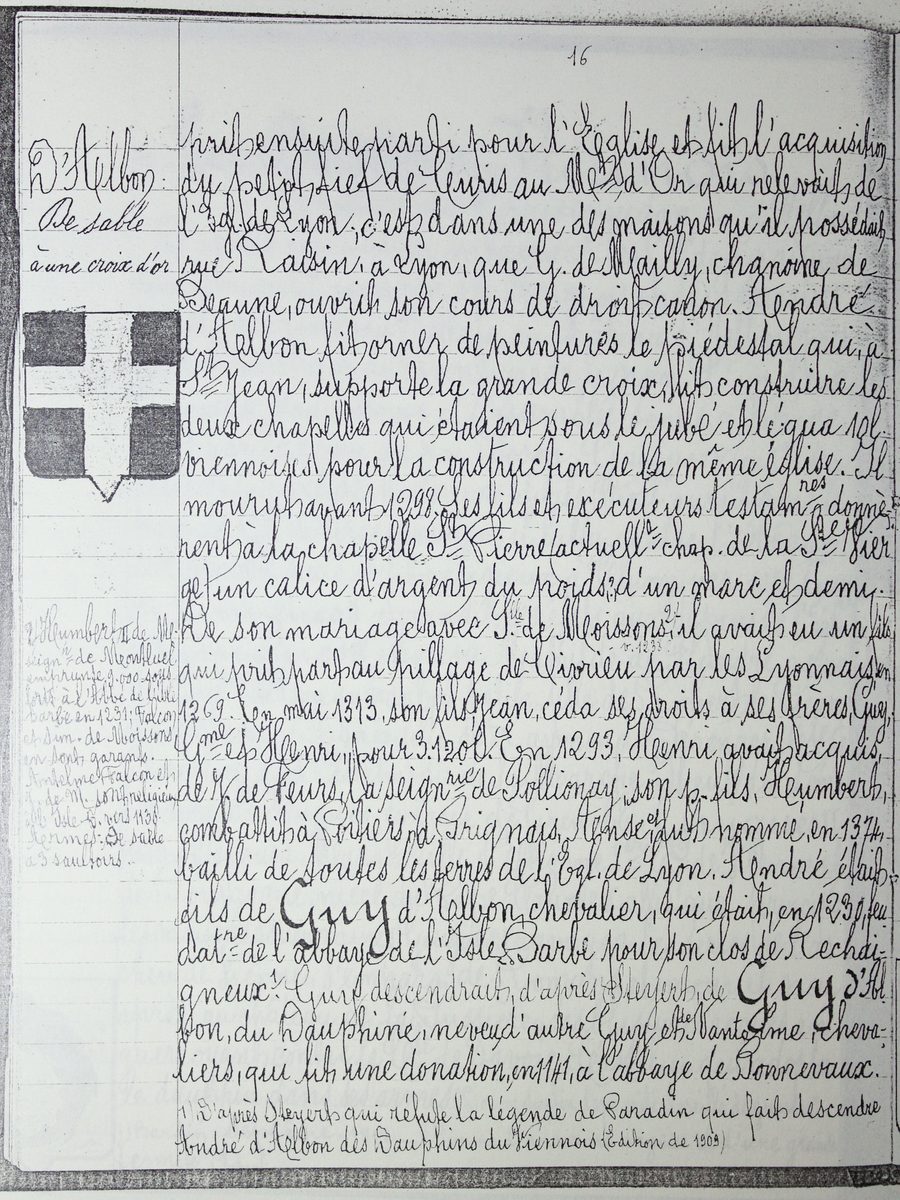 16
D'Albon
De sable
à une croix d'or
prit ensuite parti pour l'Eglise et fit l'acquisition
du petit fief de Curis au Mt d'Or qui relevait de
l'Egl. de Lyon, c'est dans une des maisons qu'il possédait,
rue Raisin, à Lyon, que G. de Mailly, chanoine de
Beaune, ouvrit son cours de droit canon. André
d'Albon fit orner de peintures le piédestal qui, à
St Jean, supporte la grande croix, fit construire les
deux chapelles qui étaient sous le jubé et légua 10l.
viennoises pour la construction de la même église. Il
mourut avant 1298. Ses fils et exécuteurs testamres donnè-
rent à la chapelle St Pierre (actuellt chap. de la Ste Vier
ge) un calice d'argent du poids d'un marc et demi.
De son mariage avec S. de Moissons, 2) il avait eu un fils
v. 1233
qui prit part au pillage de Civrieu par les Lyonnais, en
1269. En mai 1313, son fils, Jean, céda ses droits à ses frères, Guy,
Gme et Henri, pour 3.120l. En 1293, Henri avait acquis,
de J. de Feurs, la seignrie de Pollionay; son p. fils, Humbert,
combattit à Poitiers, à Brignais, Anse et fut nommé, en 1374,
bailli de toutes les terres de l'Egl. de Lyon. André était
fils de Guy d'Albon, chevalier, qui était, en 1230, feu
datre de l'abbaye de l'Isle Barbe pour son clos de Rechai-
gneux. 1) Guy descendrait, d'après Steyert, de Guy d'Al
bon, du Dauphiné, neveu d'autre Guy et de Nantelme, cheva-
liers, qui fit une donation, en 1141, à l'abbaye de Bonnevaux.
2) Humbert III de Mo.
seignr de Montluel
emprunte 9.000 sous
forts à l'Abbé de l'Isle
barbe en 1231; Falcon
et Sim. de Moissons
en sont garants.
Anselme, Falcon et
de M. sont religieux
à l'Isle-B. vers 1130.
Armes: De sable
à 3 sautoirs.
1) D'après Steyert qui réfute la légende de Paradin qui fait descendre
André d'Albon des Dauphins du Viennois (Edition de 1909)